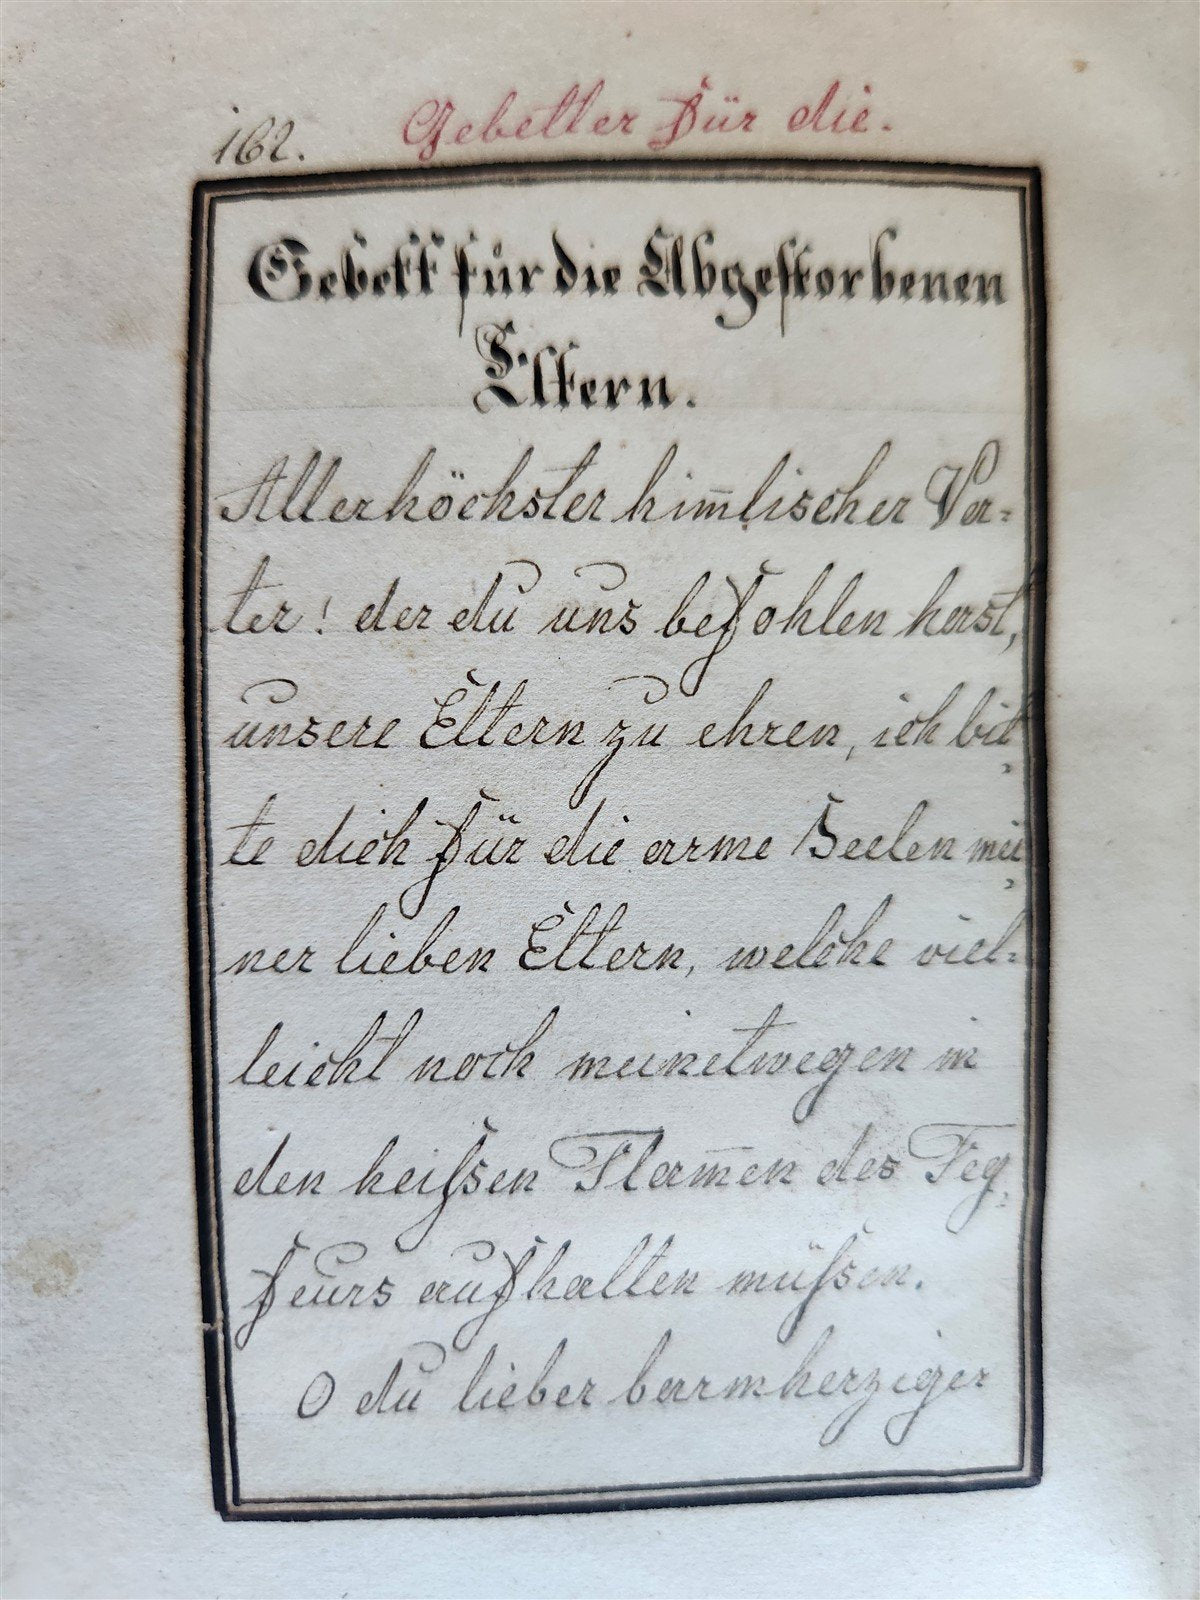 162. Gebetter für die.
Gebett für die Abgestorbenen
Eltern.
Allerhöchster him̅lischer Va=
ter! der du uns befohlen hast,
unsere Eltern zu ehren, ich bit=
te dich für die arme Seelen mei=
ner lieben Eltern, welche viel=
leicht noch meinetwegen in
den heiſsen Flam̅en des Feg=
feurs aufhalten müſsen.
O du lieber barmherziger